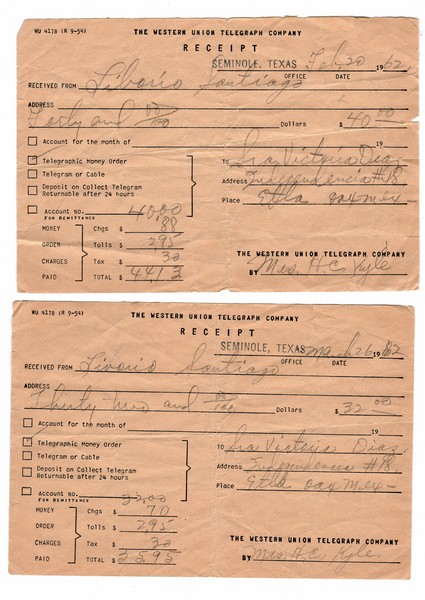 WU 4178 (R 9-54)
THE WESTERN UNION TELEGRAPH COMPANY
RECEIPT
SEMINOLE, TEXAS Feb 20 1962
OFFICE DATE
RECEIVED FROM Liborio Santiago
ADDRESS
Forty and 00/00 Dollars $ 40 00
Account for the month of 19
Telegraphic Money Order
To Sra Victoria Dias
Telegram or Cable
Address Independencia #18
Deposit on Collect Telegram
Returnable after 24 hours
Place Etla oax mex -
Account No. 40,00
FOR REMITTANCE
MONEY Chgs $ 88
ORDER Tolls $ 2,95
CHARGES Tax $ 30
PAID TOTAL $ 44,13
THE WESTERN UNION TELEGRAPH COMPANY
BY Mrs. H.C. Kyle
WU 4178 (R 9-54)
THE WESTERN UNION TELEGRAPH COMPANY
RECEIPT
SEMINOLE, TEXAS March 26 1962
OFFICE DATE
RECEIVED FROM Livorio Santiago
ADDRESS
Thirty two and 00/100 Dollars $ 32 00
Account for the month of 19
Telegraphic Money Order
To Sra Victoria Dias
Telegram or Cable
Address Independencia #18
Deposit on Collect Telegram
Returnable after 24 hours
Place Etla oax mex -
Account No. 32,00
FOR REMITTANCE
MONEY Chgs $ 70
ORDER Tolls $ 2,95
CHARGES Tax $ 30
PAID TOTAL $ 35,95
THE WESTERN UNION TELEGRAPH COMPANY
BY Mrs. H.C. Kyle